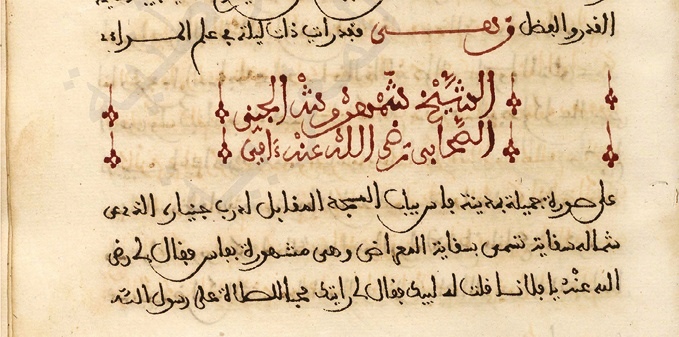 القدر والفضل ومنهم فقد رأت ذات ليلة في علم المراءي
الشيخ شمهروش الجني
الصحابي رضي الله عنه ءامين
على صورة جميلة بمدينة فاس بباب المسجد المقابل لدرب جنيارة الذي عن
شماله سقاية تسمى بسقاية الدمراضي وهي مشهورة بفاس فقال لي رضي
الله عنه يا فلانا قلت له لبيك فقال لي رأيتك محبا للصلاة على رسول الله